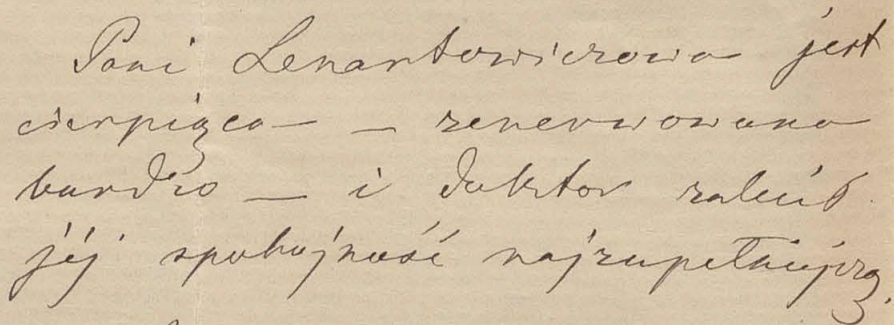 Pani Lenartowiczowa jest
cierpiąca — zenerwowana
bardzo — i doktor zalecił
jéj spokojność najzupełniejszą.